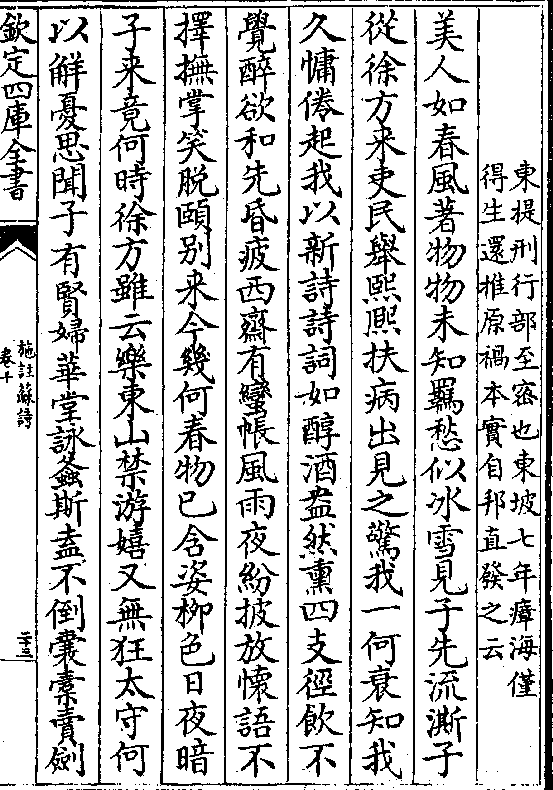 東提刑行部至密也東坡七年瘴海僅
得生還推原禍本實自邦直發之云
美人如春風著物物未知羈愁似冰雪見子先流澌子
從徐方来吏民舉熙熙扶病出見之驚我一何衰知我
久慵倦起我以新詩詩詞如醇酒盎然熏四支徑飲不
覺醉欲和先昏疲西齋有蠻帳風雨夜紛披放懐語不
擇撫掌笑脱頤别来今幾何春物已含姿柳色日夜暗
子来竟何時徐方雖云樂東山禁游嬉又無狂太守何
以解憂思聞子有賢婦華堂詠螽斯盍不倒囊槖賣劒
欽定四庫全書
施註蘇詩
卷十
二十三